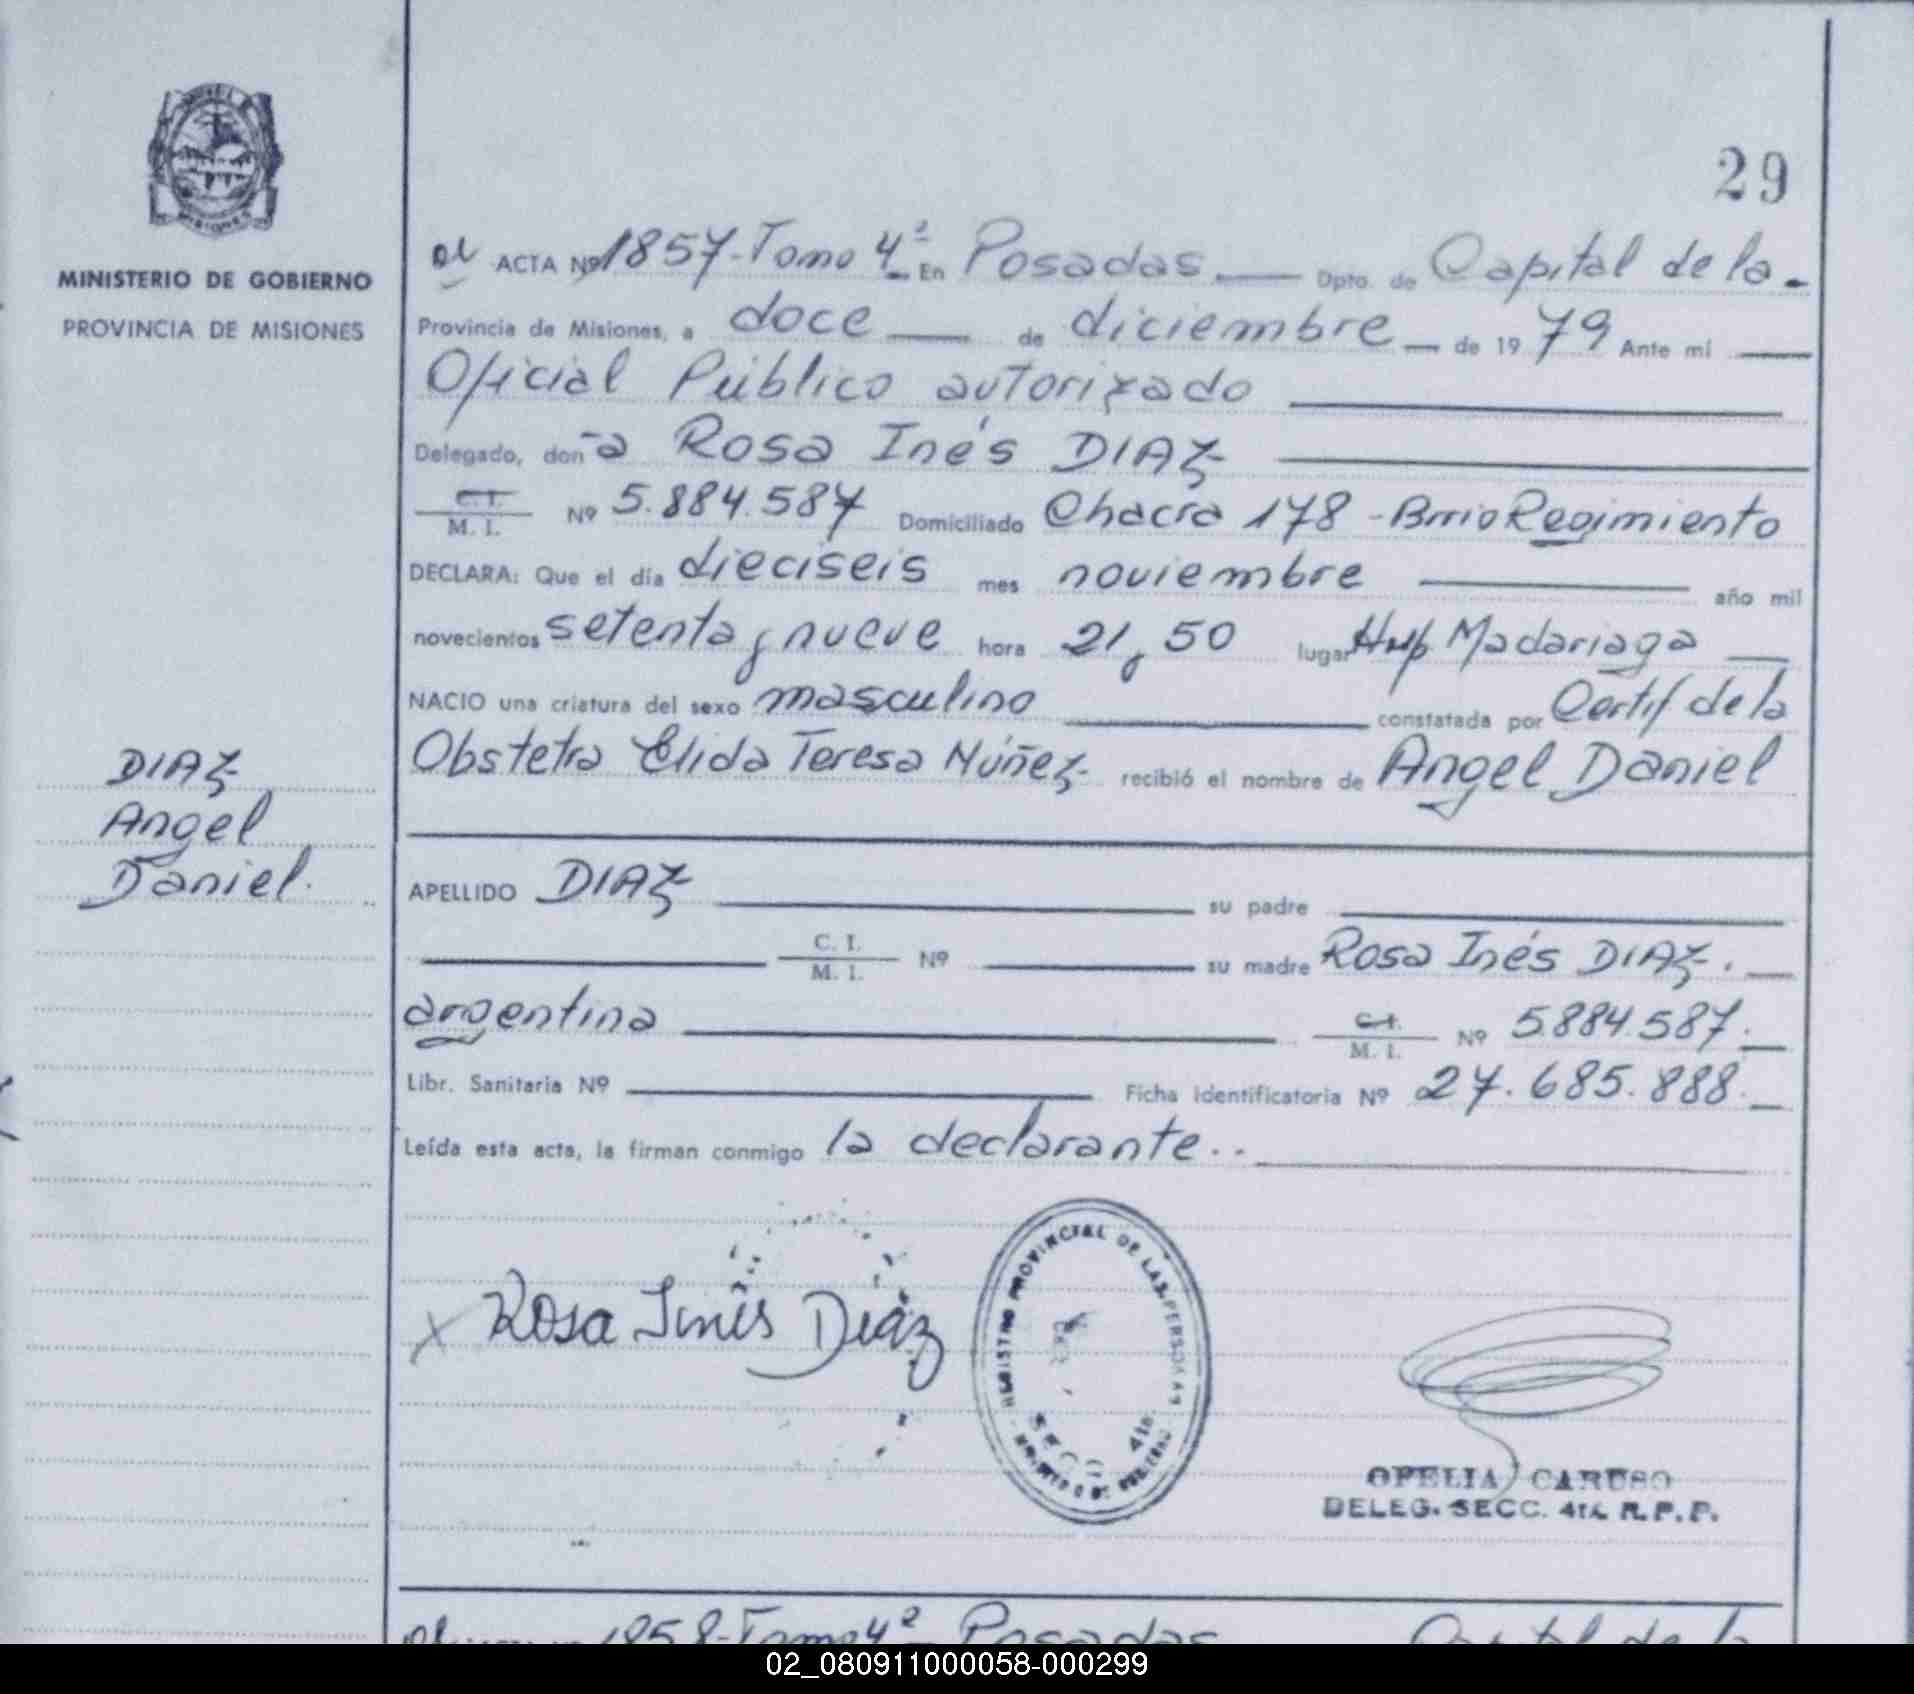 29
MINISTERIO DE GOBIERNO
PROVINCIA DE MISIONES
ACTA Nº 1857-Tomo 4º En Posadas Dpto. de Capital de la
Provincia de Misiones, a doce de diciembre de 1979 Ante mi
Oficial Público autorizado
Delegado, doña Rosa Inés DIAZ
C. I. / M. I. Nº 5.884.587 Domiciliado Chacra 178 - Brrio Regimiento
DECLARA: Que el día dieciseis mes noviembre año mil
novecientos setenta y nueve hora 21,50 lugar Hosp Madariaga
NACIO una criatura del sexo masculino constatada por Certif de la
Obstetra Elida Teresa Núñez recibió el nombre de Angel Daniel
DIAZ
Angel
Daniel.
APELLIDO DIAZ su padre
C. I. / M. I. Nº su madre Rosa Inés DIAZ.
argentina C. I. / M. I. Nº 5.884.587.
Libr. Sanitaria Nº Ficha Identificatoria Nº 27.685.888.
Leída esta acta, la firman conmigo la declarante..
Rosa Inés Diáz
REGISTRO PROVINCIAL DE LAS PERSONAS
SECC 4ta
OFELIA CARUSO
DELEG. SECC. 4ta. R.P.P.
1858-Tomo 4º Posadas Capital de la
02_080911000058-000299